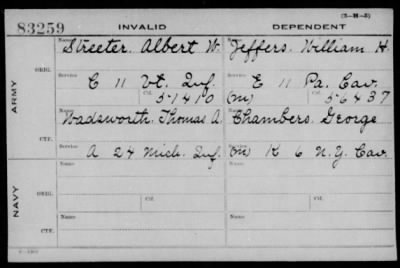 (3-H-3)
83259 INVALID DEPENDENT
Name Name
Streeter, Albert W. Jeffers, William H.
ORIG. Service Service
C 11 Vt. Inf. E 11 Pa. Cav.
Ctf. 51410 (m) Ctf. 56437
ARMY
Name Name
Wadsworth, Thomas A. Chambers, George
CTF. Service Service
A 24 Mich. Inf. (m) K 6 N.Y. Cav.
Name Name
ORIG. Service Service
Ctf. Ctf.
NAVY
Name Name
CTF. Service Service